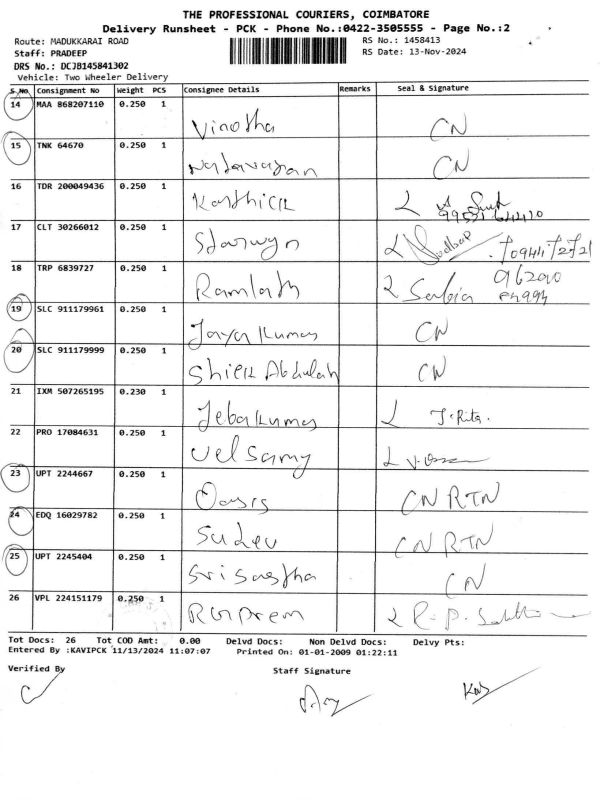 THE PROFESSIONAL COURIERS, COIMBATORE
Delivery Runsheet - PCK - Phone No.:0422-3505555 - Page No.:2
Route: MADUKKARAI ROAD
RS No.: 1458413
Staff: PRADEEP
RS Date: 13-Nov-2024
DRS No.: DCJB145841302
Vehicle: Two Wheeler Delivery
S.No. Consignment No Weight PCS Consignee Details Remarks Seal & Signature
14 MAA 868207110 0.250 1 Vinotha CN
15 TNK 64670 0.250 1 CN
16 TDR 200049436 0.250 1 Karthick
17 CLT 30266012 0.250 1
18 TRP 6839727 0.250 1 Ramlath Sabia
19 SLC 911179961 0.250 1 Jaya Kumar CN
20 SLC 911179999 0.250 1 Shiek Abdulah CN
21 IXM 507265195 0.230 1 Jeba Kumar J. Rita.
22 PRO 17084631 0.250 1 Velsamy
23 UPT 2244667 0.250 1 Oasis CN RTN
24 EDQ 16029782 0.250 1 CN RTN
25 UPT 2245404 0.250 1 Sri Sastha CN
26 VPL 224151179 0.250 1
Tot Docs: 26 Tot COD Amt: 0.00 Delvd Docs: Non Delvd Docs: Delvy Pts:
Entered By :KAVIPCK 11/13/2024 11:07:07 Printed On: 01-01-2009 01:22:11
Verified By
Staff Signature